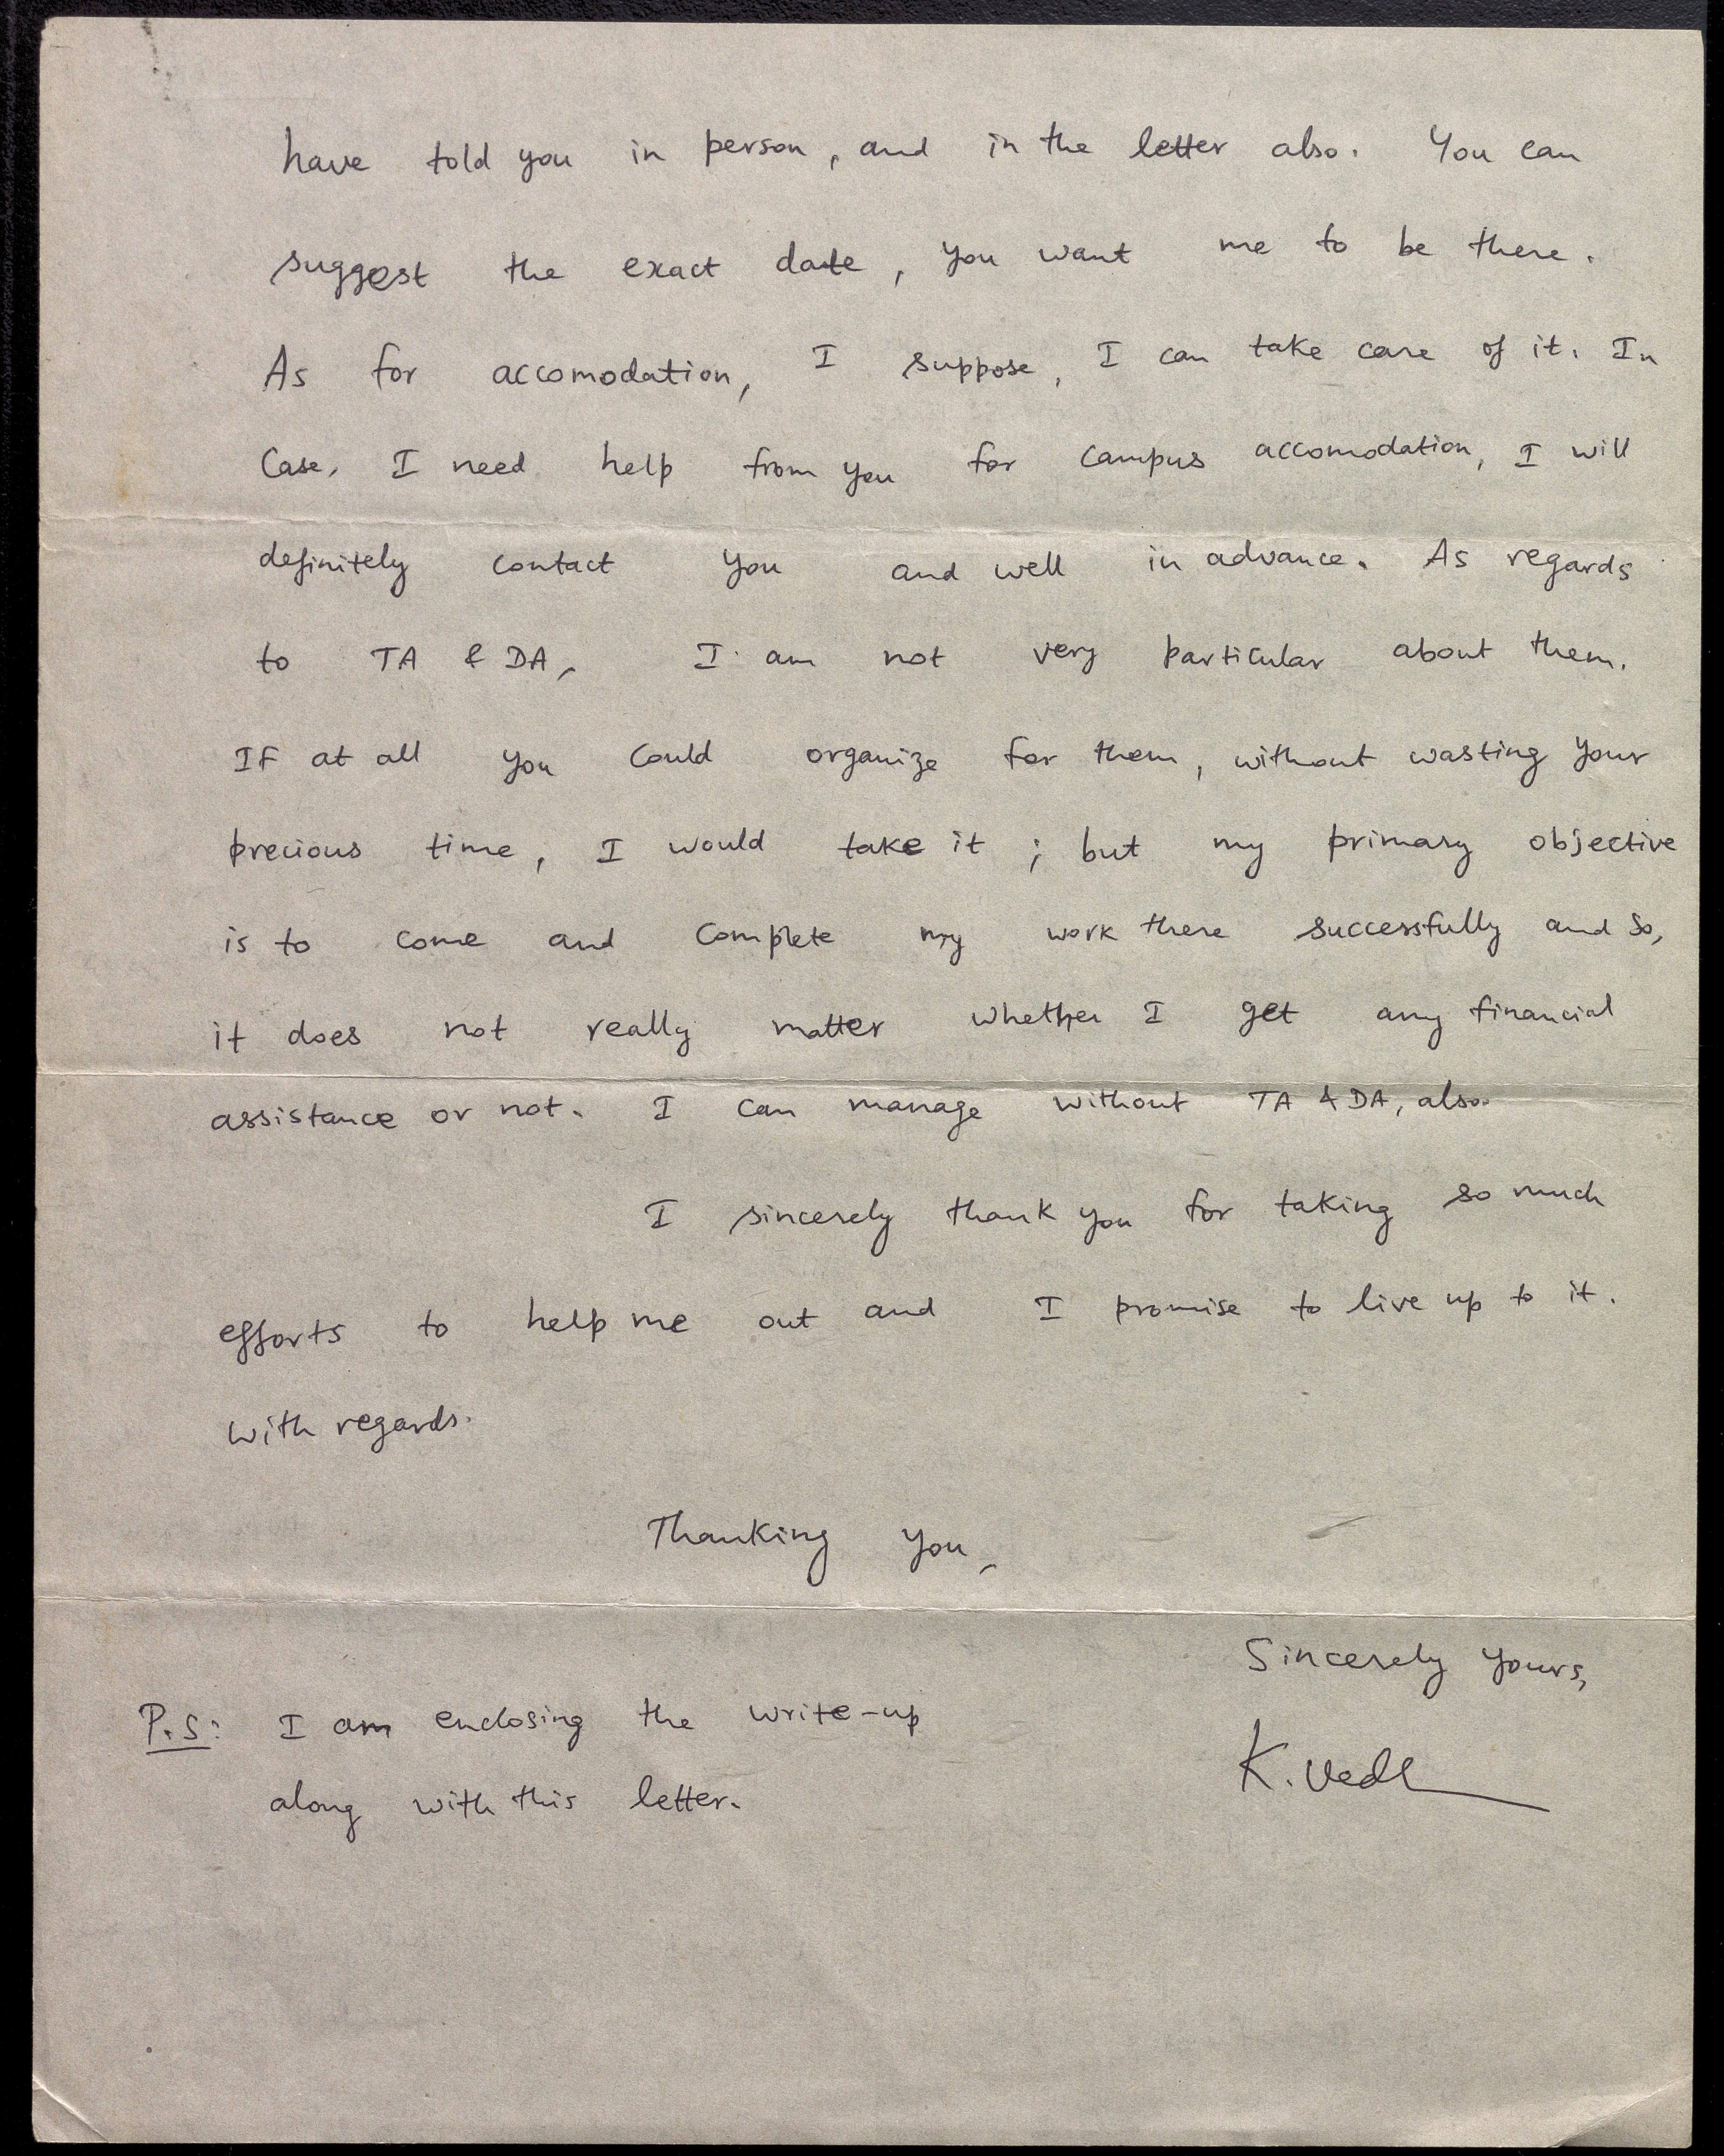 have told you in person, and in the letter also. You can
suggest the exact date, you want me to be there.
As for accomodation, I suppose, I can take care of it. In
Case, I need help from you for campus accomodation, I will
definitely contact you and well in advance. As regards
to TA & DA, I am not very particular about them.
If at all you could organize for them, without wasting your
precious time, I would take it ; but my primary objective
is to come and complete my work there successfully and so,
it does not really matter whether I get any financial
assistance or not. I can manage without TA & DA, also.
I sincerely thank you for taking so much
efforts to help me out and I promise to live up to it.
With regards.
Thanking you,
Sincerely yours,
P.S: I am enclosing the write-up
along with this letter.
K.